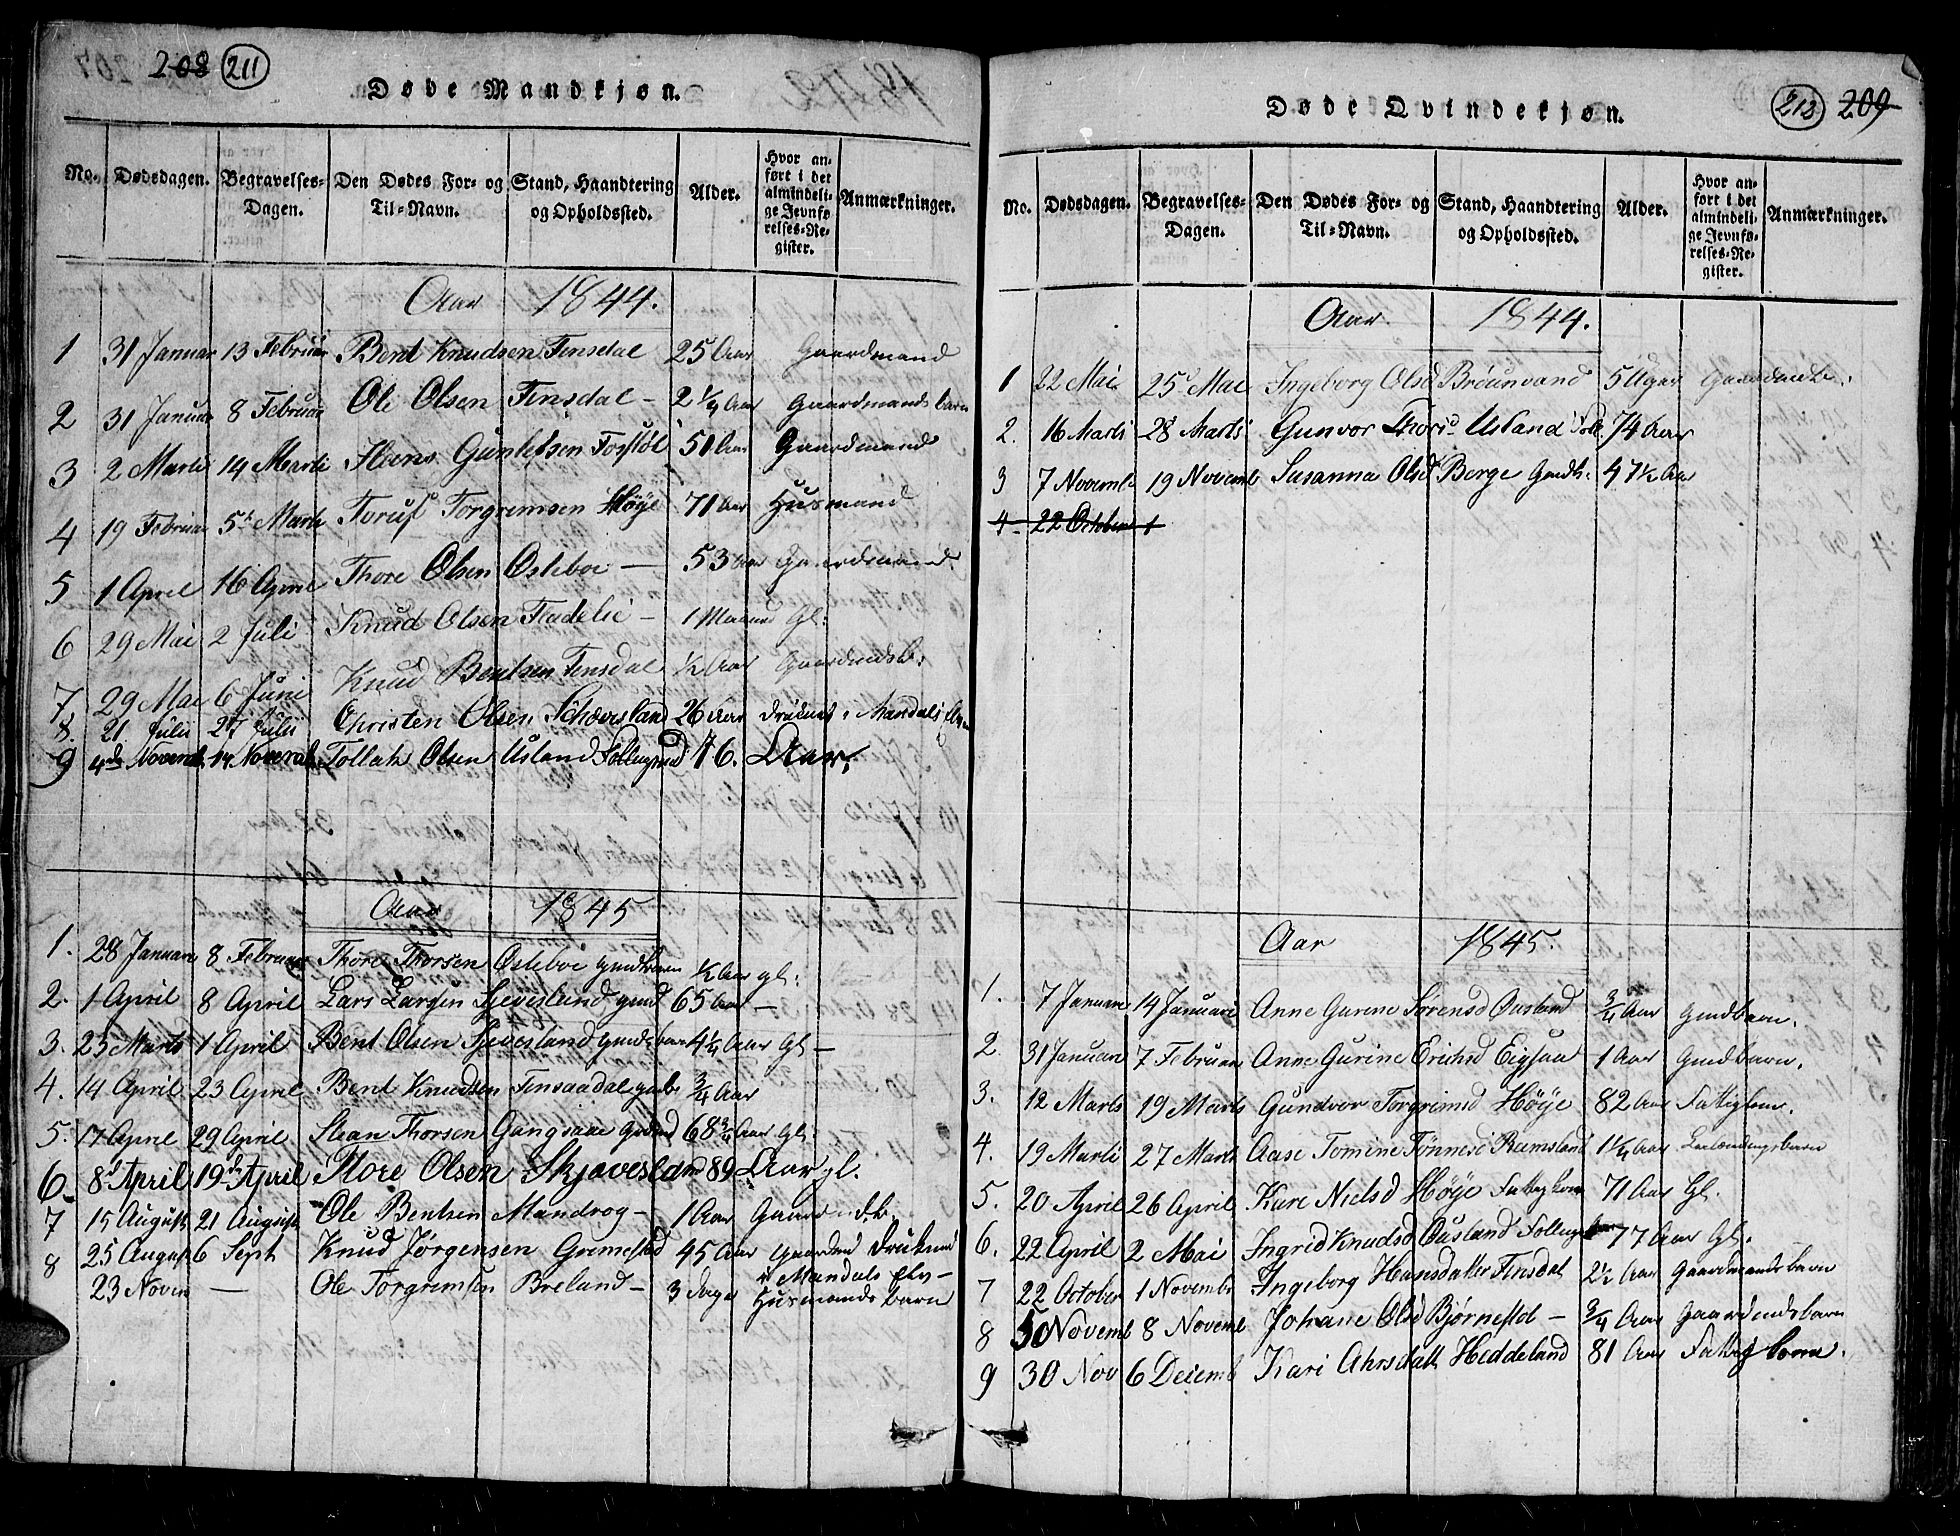 208 211
Døde Mandkjøn.
No. Dødsdagen. Begravelses-Dagen. Den Dødes For- og Til-Navn. Stand, Haandtering og Opholdssted. Alder. Hvor anført i det almindelige Jevnførelses-Register. Anmærkninger.
Aar 1844.
1 31 Januar 13 Februar Bent Knudsen Finsdal 25 Aar Gaardmand
2 31 Januar 8 Februar Ole Olsen Finsdal - 2 1/4 Aar Gaardmands barn
3 2 Marti 14 Marti Hans Gunlefsen 51 Aar Gaardmand
4 19 Februar 5t Marti Torgrimsen Høye 71 Aar Husmand
5 1 April 16 April Thore Olsen Osteboe - 53 Aar Gaardmand
6 29 Mai 2 Juli Knud Olsen Fladelie - 1 Maaned Gl.
7 29 Mai 6 Juni Knud Bentsen Finsdal 1/2 Aar Gaardmdsb.
8. 21 Julii 27 Julii Christen Olsen 26 Aar druknet i Mandals Elven
9 4de Novemb. 14 Novemb. Tollak Olsen Usland 76. Aar.
Aar 1845
1. 28 Januar 8 Februar Thore Thorsen Osteboe gmdbarn 1/2 Aar gl:
2. 1 April 8 April Lars Larsen Sjevesland gmd 65 Aar -
3. 25 Marts 1 April Bent Olsen Sjevesland gmdsbarn 4 1/4 Aar Gl -
4. 14 April 23 April Bent Knudsen Finsaadal gmb. 3/4 Aar
5. 17 April 29 April Stean Thorsen Gangsaae 68 3/4 Aar Gl:
6. 8d April 19de April Thore Olsen Skjævesland 89 Aar gl.
7 15 August 21 August Ole Bentsen Mandrog - 1 Aar Gaardmdb.
8 25 August 6 Sept Knud Jørgensen Grimestad 45 Aar Gaardmd Druknet i Mandals Elv -
23 Novem - Ole Torgrimsen Breland - 3 Dage Husmands barn
212 209
Døde Qvindekjøn.
No. Dødsdagen. Begravelses-Dagen. Den Dødes For- og Til-Navn. Stand, Haandtering og Opholdssted. Alder. Hvor anført i det almindelige Jevnførelses-Register. Anmærkninger.
Aar 1844.
1 22 Mai 25d Mai Ingeborg Olsd Brøunvand 5 Uger Gaardmdb.
2. 16 Marts 28 Marts Gunvor Thorsd Usland 74 Aar
3 7 Novemb 19 Novemb Susanna Olsd Berge Gmdk. 47 1/2 Aar
4 22 October 1
Aar 1845.
1. 7 Januar 14 Januari Anne Gurine Sørensd Ousland 3/4 Aar gmdbarn.
2. 31 Januar 7 Februar Anne Gurine Erichsd Eigsaa 1 Aar Gmdbarn.
3. 12 Marts 19 Marts Gundvor Torgrimsd Høye 82 Aar Fattiglem.
4. 19 Marti 27 Marts Aase Tomine Tønnesd Ramsland 1 1/4 Aar
5. 20 April 26 April Kari Nielsd Høye Fattiglem 71 Aar Gl.
6. 22 April 2 Mai Ingrid Knudsd Ousland 77 Aar Gl.
7 22 October 1 Novemb Ingeborg Hansdatter Finsdal 2 1/2 Aar Gaardmands barn
8 30 Novemb 8 Novemb Johane Olsd Bjørnestd - 3/4 Aar Gaardmdsbarn
9 30 Nov 6 Decemb Kari Ahrsdatt Heddeland 81 Aar Fattig Lem.